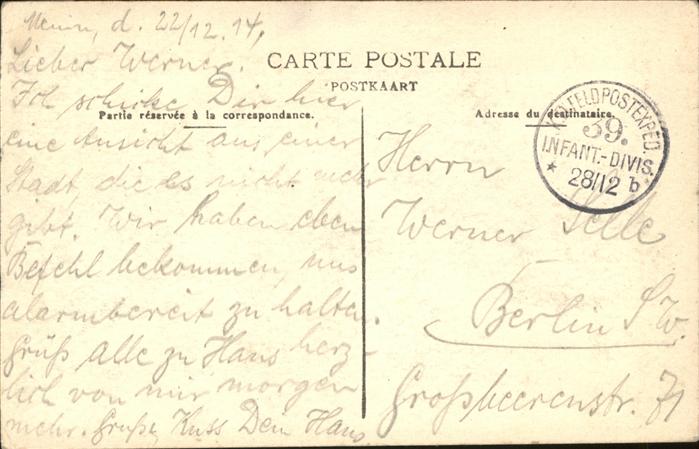 Menin, d. 22/12. 14.
Lieber Werner.
Ich schicke Dir hier
eine Ansicht aus einer
Stadt, die es nicht mehr
gibt. Wir haben eben
Befehl bekommen, uns
alarmbereit zu halten.
Grüß alle zu Haus herz-
lich von mir morgen
mehr. Gruß, Kuss Dein Hans
CARTE POSTALE
POSTKAART
Partie réservée à la correspondance.
Adresse du destinataire.
FELDPOSTEXPED.
39.
INFANT.-DIVIS.
* 28/12 b
Herrn
Werner Selle
Berlin S.W.
Großbeerenstr. 71